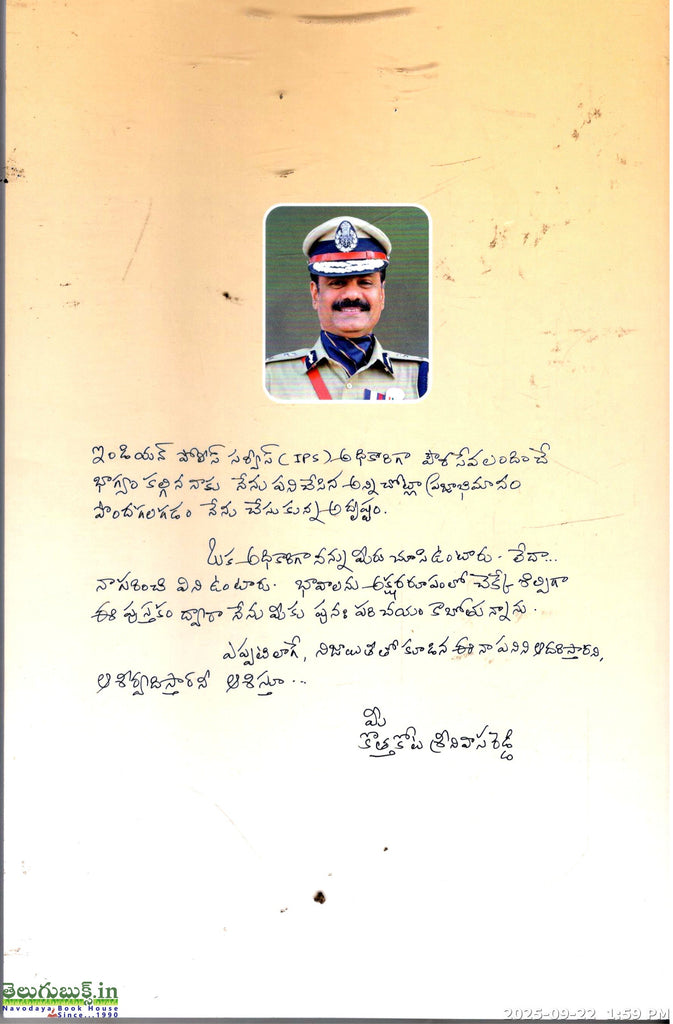 ఇండియన్ పోలీస్ సర్వీస్ (IPS) అధికారిగా పౌరసేవలందించే
భాగ్యం కల్గిన నాకు నేను పనిచేసిన అన్ని చోట్లా ప్రజాభిమానం
పొందగలగడం నేను చేసుకున్న అదృష్టం.
ఒక అధికారిగా నన్ను మీరు చూసి ఉంటారు. లేదా...
నా గురించి విని ఉంటారు. భావాలను అక్షరరూపంలో చెక్కే శిల్పిగా
ఈ పుస్తకం ద్వారా నేను మీకు పునః పరిచయం కాబోతున్నాను.
ఎప్పటిలాగే, నిజాయితీతో కూడిన ఈ నా పనిని ఆదరిస్తారని,
ఆశీర్వదిస్తారని ఆశిస్తూ...
మీ
కొత్తకోట శ్రీనివాస రెడ్డి
తెలుగుబుక్స్.in
Navodaya Book House
Since...1990
2025-09-22 1:59 PM